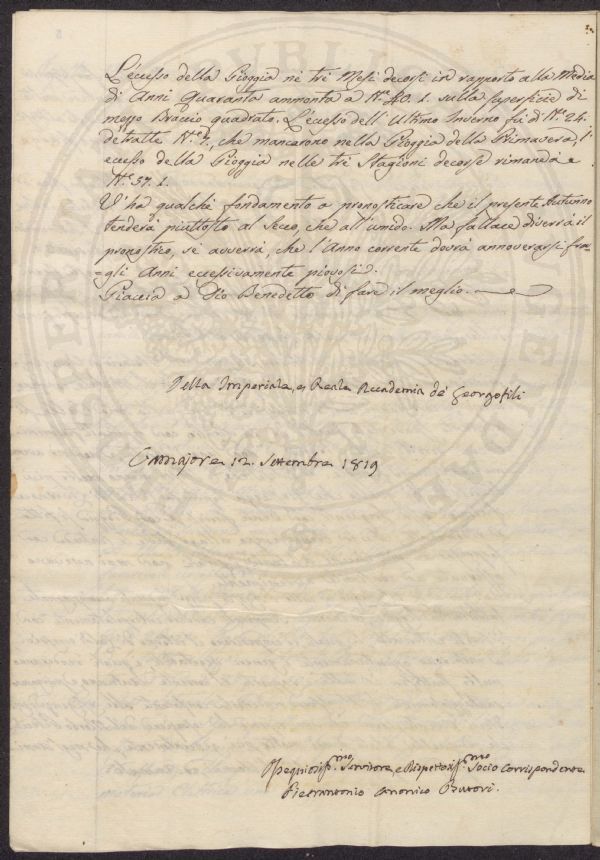 L'ecesso della Pioggia ne tre Mesi decorsi in rapporto alla Media
di Anni Quaranta ammonta a N.e 40. 1. sulla superficie di
mezzo Braccio quadrato. L'ecesso dell'Ultimo Inverno fu di N.e 24.
detratte N.e 7, che mancarono nella Pioggia della Primavera, l'
ecesso della Pioggia nelle tre Stagioni decorse rimane a
N.e 57. 1.
V'ha qualche fondamento a pronosticare che il presente Autunno
tenderà piuttosto al Secco, che all'umido. Ma fallace diverrà il
pronostico, se avverrà, che l'Anno corrente dovrà annoverarsi fra
=gli Anni eccessivamente piovosi.
Piaccia a Dio Benedetto di fare il meglio.
Della Imperiale, e Reale Accademia de' Georgofili
Camajore 12. Settembre 1819
Ossequiosiss.mo Servitore, e Rispettosiss.mo Socio Corrispondente
Pietrantonio Canonico Butori.